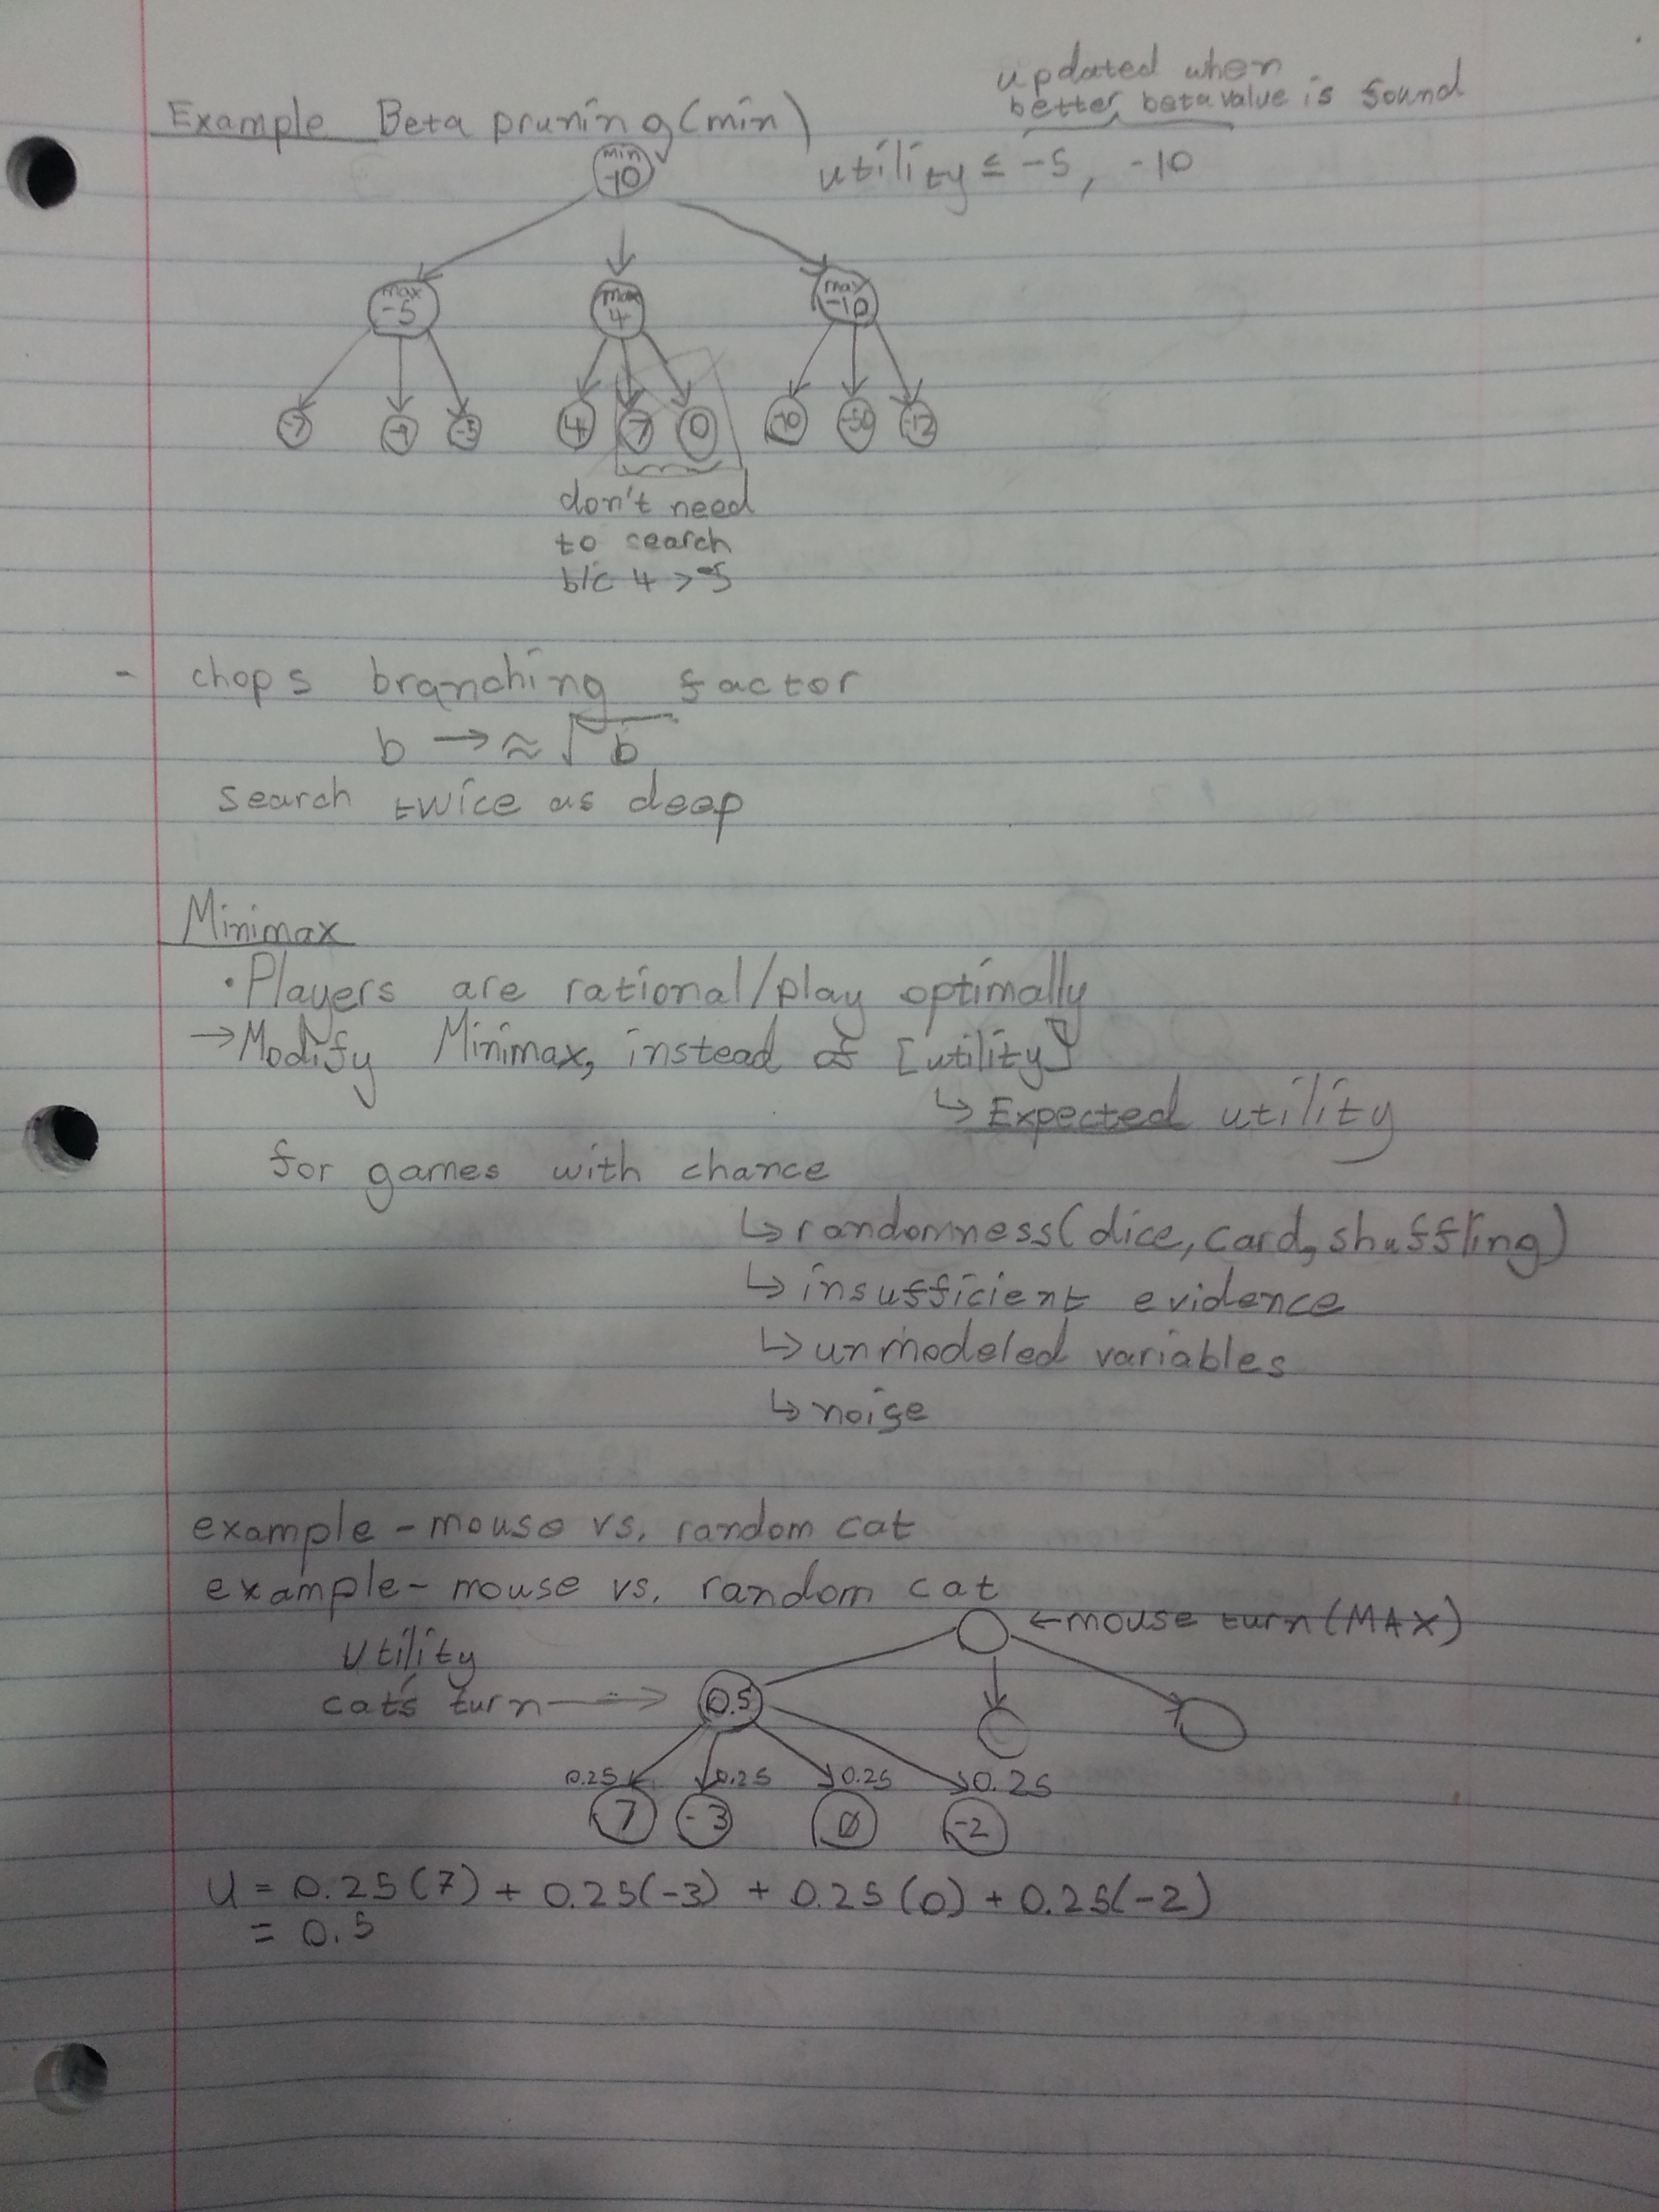 updated when
better beta value is found
Example Beta pruning (min)
min
-10
utility ≤ -5, -10
max
-5
max
4
max
-10
-7
-5
4 7 0
-10 -50 -12
don't need
to search
b/c 4 > -5
- chops branching factor
b → ≈ √b
search twice as deep
Minimax
• Players are rational/play optimally
→ Modify Minimax, instead of [utility]
↳ Expected utility
for games with chance
↳ randomness (dice, card, shuffling)
↳ insufficient evidence
↳ unmodeled variables
↳ noise
example - mouse vs. random cat
example - mouse vs. random cat
← mouse turn (MAX)
Utility
cat's turn → 0.5
0.25 0.25 0.25 0.25
7 -3 0 -2
U = 0.25(7) + 0.25(-3) + 0.25(0) + 0.25(-2)
= 0.5